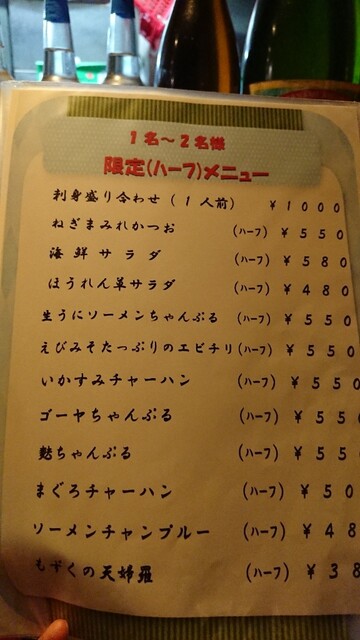 1名～2名様
限定(ハーフ)メニュー
刺身盛り合わせ(1人前) ￥1000
ねぎまみれかつお (ハーフ) ￥550
海鮮サラダ (ハーフ) ￥580
ほうれん草サラダ (ハーフ) ￥480
生うにソーメンちゃんぷる (ハーフ) ￥550
えびみそたっぷりのエビチリ(ハーフ) ￥550
いかすみチャーハン (ハーフ) ￥550
ゴーヤちゃんぷる (ハーフ) ￥55
麩ちゃんぷる (ハーフ) ￥55
まぐろチャーハン (ハーフ) ￥50
ソーメンチャンプルー (ハーフ) ￥48
もずくの天婦羅 (ハーフ) ￥38